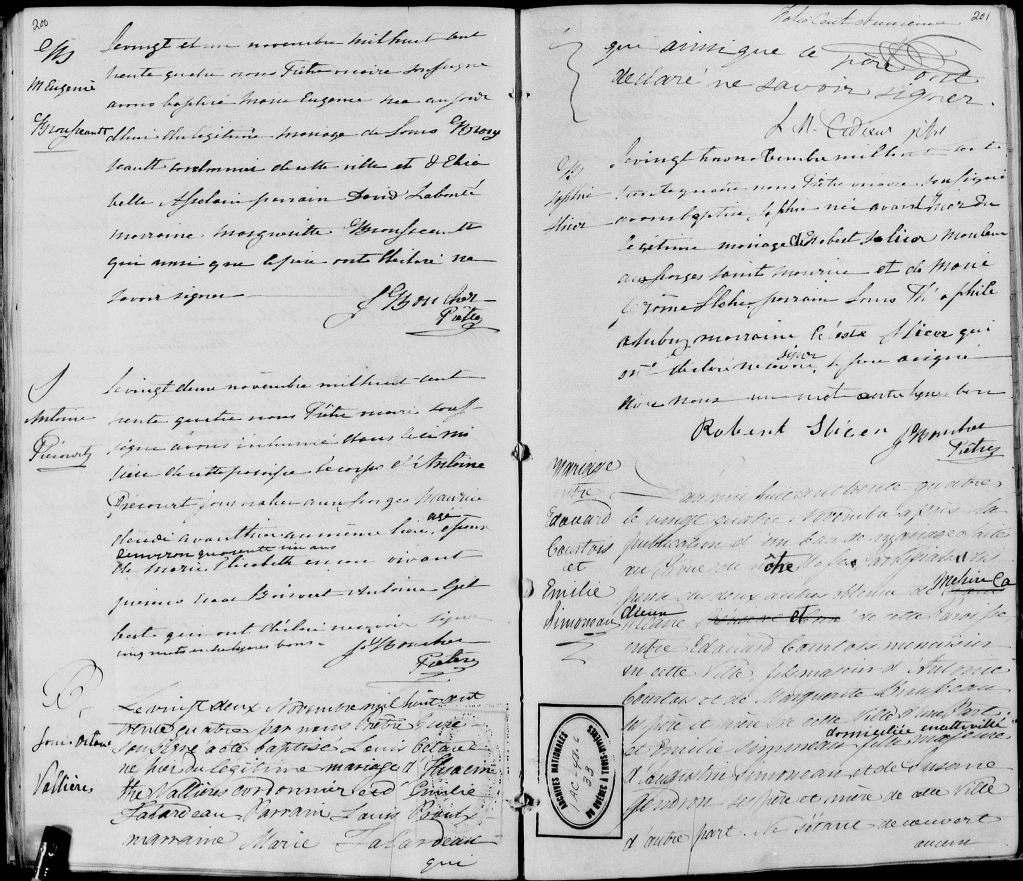 200
B
M Eugenie
Brousseault
Le vingt et un novembre mil huit cent
trente quatre nous Prêtre vicaire soussigné
avons baptisé Marie Eugenie née aujourd
d'hui du légitime mariage de Louis Brous
seault cordonnier de cette ville et d'Eliza
belle parrain David Laborlé
marraine Margueritte Brousseault
qui ainsi que le père ont déclaré ne
savoir signer
J Boucher
Prêtre
S
Antoine
Précourt
Le vingt deux novembre mil huit cent
trente quatre nous Prêtre vicaire sous
signé avons inhumé dans le cime
tière de cette paroisse le corps d'Antoine
Précourt journalier aux forges St Maurice
décédé avanthier au même lieu, agé, époux
d'environ quarante ans
de Marie Elizabeth en son vivant
présens Isaac Boisvert Antoine Gel
qui ont déclaré ne savoir signer
cinq mots en interligne bons. Js Boucher
Prêtre
B
Louis Octave
Vallières
Le vingt deux Novembre mil huit cent
trente quatre par nous Prêtre Curé
soussigné a été baptisé Louis Octave
né hier du légitime mariage d'Hyacin
the Vallières cordonnier et d'Emilie
Falardeau Parrain Louis
marraine Marie Falardeau
qui
201
Folio Cent et unième
qui ainsi que le père ont
declaré ne savoir signer.
L. M. Cadieux ptre
B
Sophie
Slicer
Le vingt trois novembre mil huit cent
trente quatre nous Prêtre vicaire soussigné
avons baptisé Sophie née avant hier du
légitime mariage de Robert Slicer mouleur
aux forges Saint Maurice et de Marie
Jérôme parrain Louis Théophile
Aubry marraine Céleste Slicer qui
ont déclaré ne savoir signer, le père a signé
avec nous un mot entre ligne bon
Robert Slicer Js Boucher
Prêtre
Mariage
entre
Edouard
Courtois
et
Emilie
Simoneau
L'an mil huit cent trente quatre
le vingt quatre Novembre après la
publication d'un ban de mariage faite
au Prône de nôtre Messe Paroissiale
des deux autres obtenue de Messire Ca
dieux de cette Paroisse
entre Edouard Courtois menuisier
en cette Ville fils majeur d'Antoine
Courtois et de Marguerite Brunbeau
ses père et mère de cette Ville d'une Part,
domiciliée en cette ville
et Emilie Simoneau fille majeure
d'Augustin Simoneau et de Susane
Gendron ses père et mère de cette Ville
d'autre part. Ne s'étant découvert
aucun
ARCHIVES NATIONALES
DU QUÉBEC À TROIS-RIVIÈRES